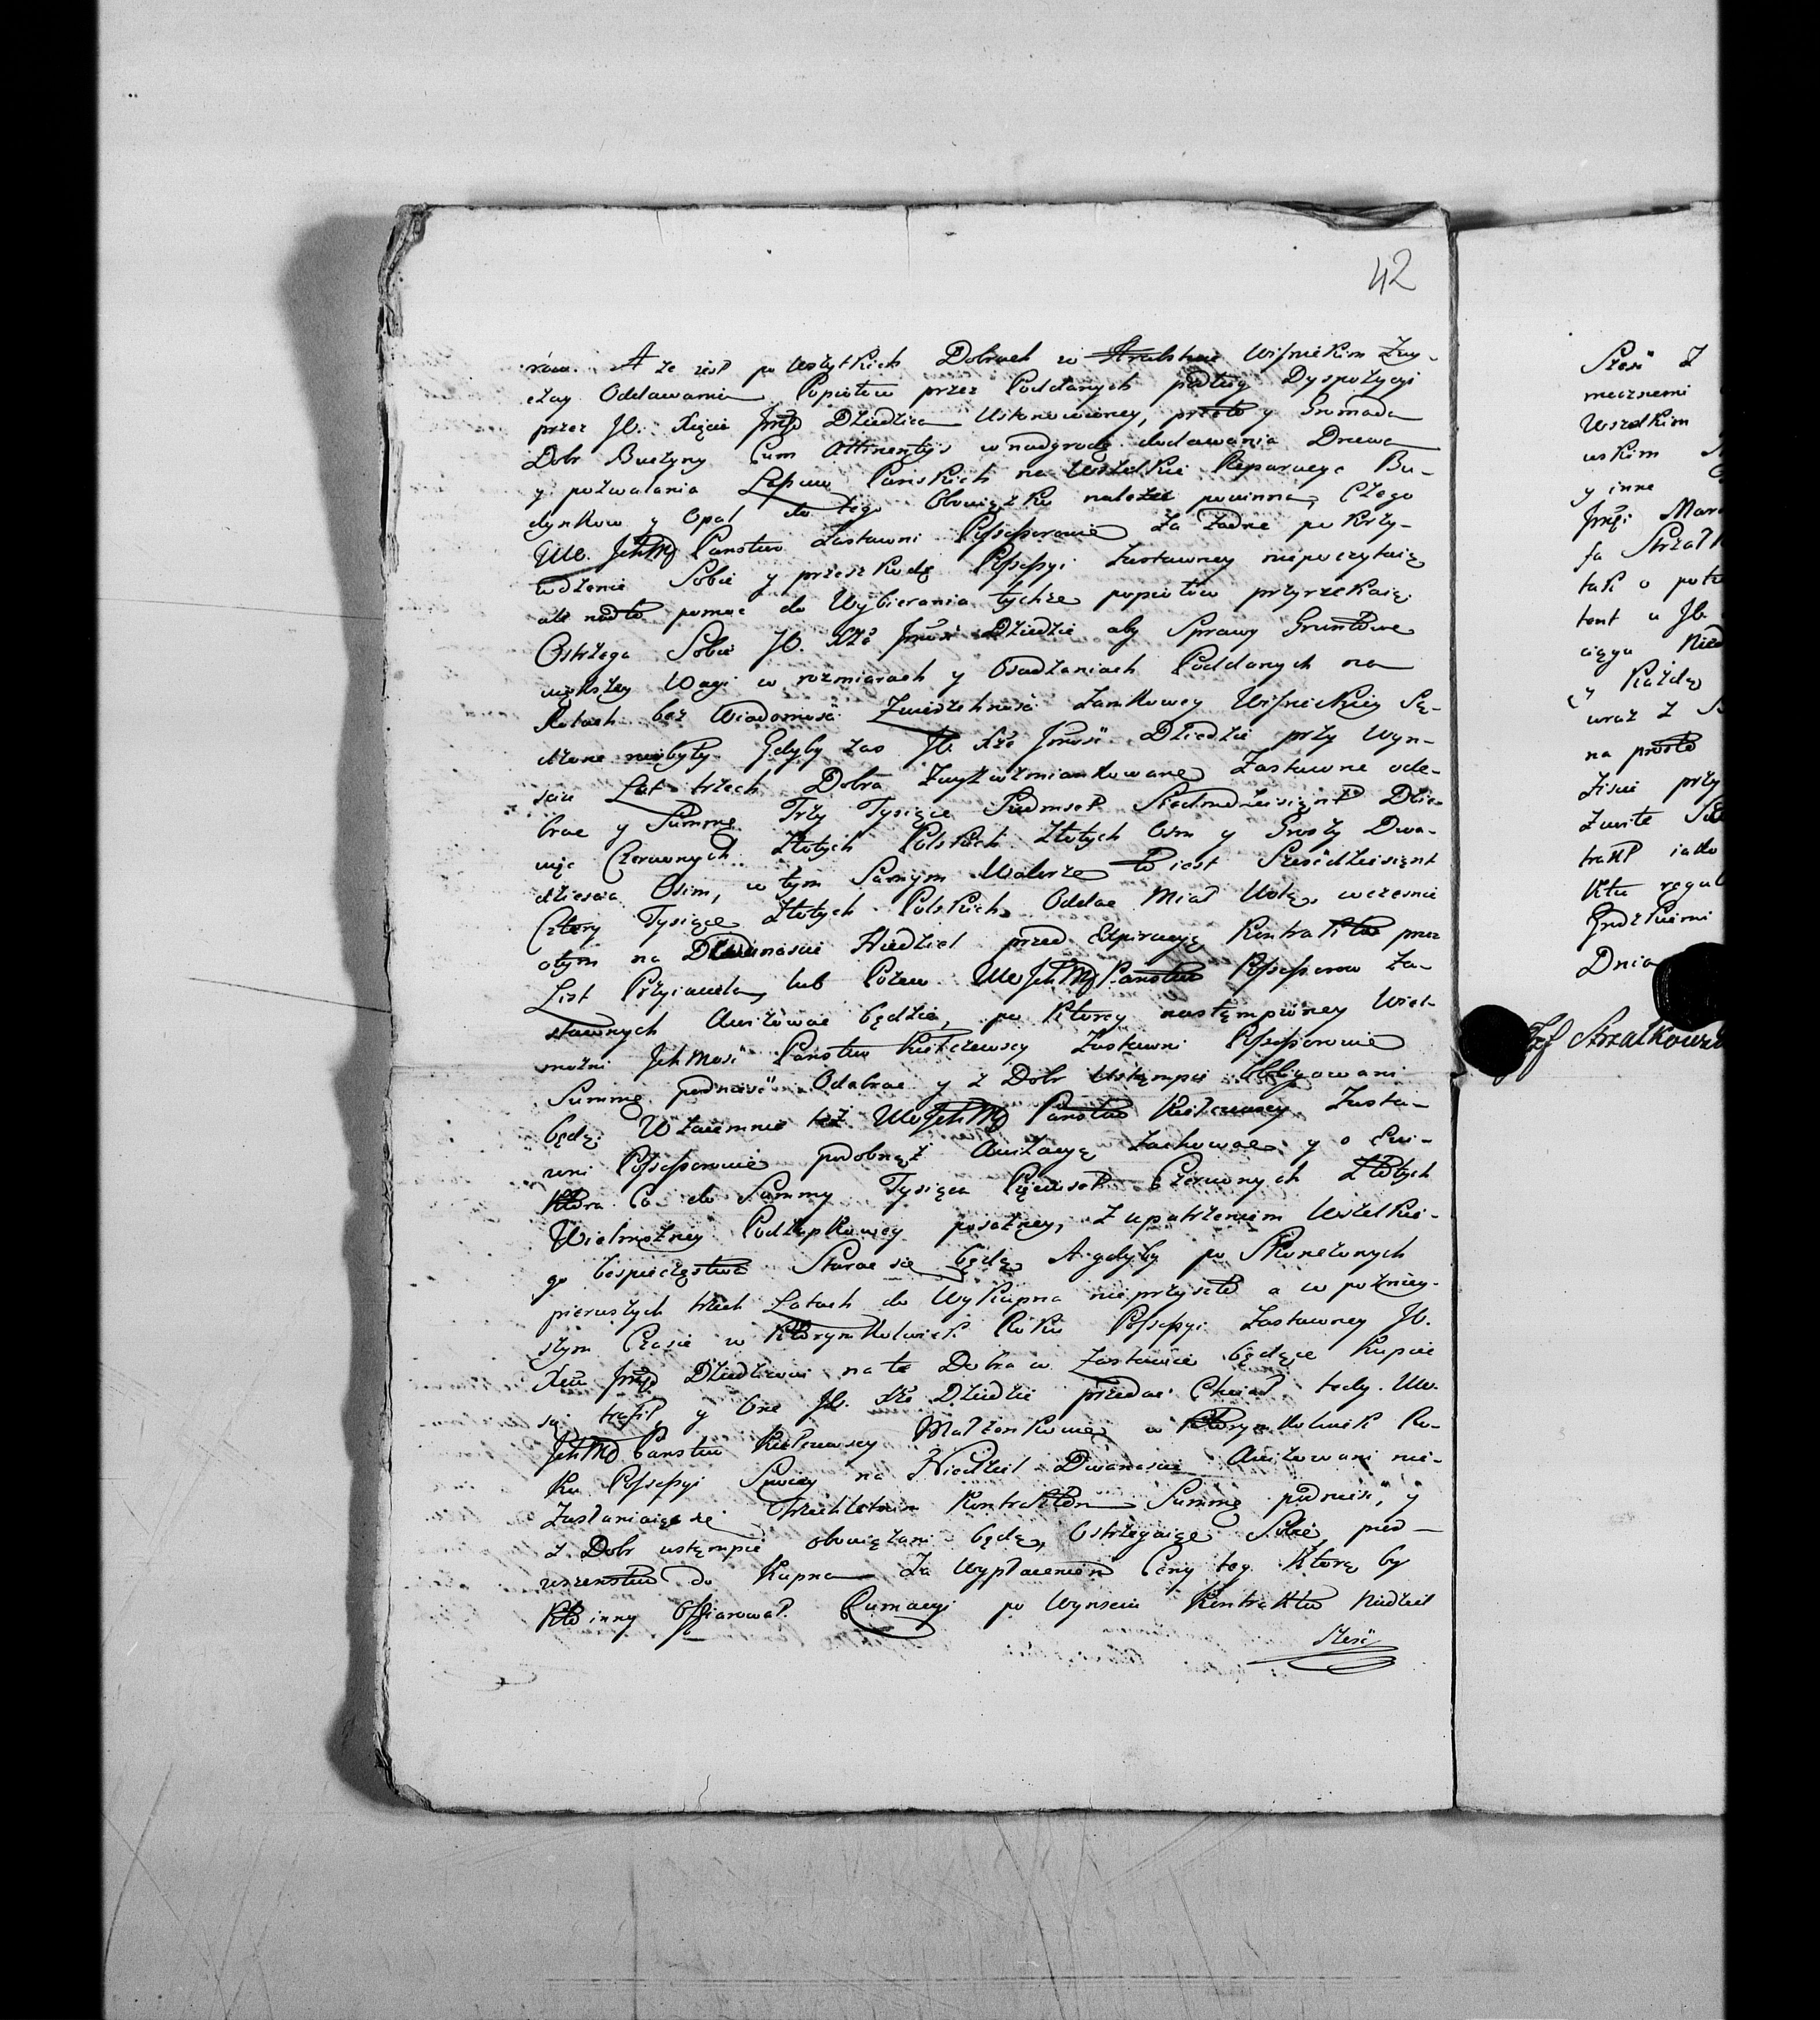 42
rów. A że iest po Wszytkich Dobrach w Hrabstwie Wiśnickim Zwy-
czay Oddawania Popiołów przez Poddanych podług Dyspozycyi
przez JO. Xięcia Jmci Dziedzica Ustanowioney, przeto y Gromada
Dobr Buczyny Cum Attinentys w nadgrodę dodawania Drzewa
y pozwalania Lasów Pańskich na Wszelkie Reparacye Bu-
dynkow y Opał do tego Obowiązku należeć powinna, Czego
WW. JchMć Państwo Zastawni Possessorowie za żadne po Krzy-
wdzenie Sobie y przeszkodę Possessyi Zastawney niepoczytaią
ale nadto pomoc do Wybierania tychże popiołów przyrzekaią.
Ostrzega Sobie JO. Xże Jmość Dziedzic aby Sprawy Gruntowe
większey Wagi w rozmiarach y Osadzaniach Poddanych na
Rolach bez Wiadomości Zwierzchności Zamkowey Wiśnickiey Są-
dzone niebyły. Gdyby zaś JO. Xże Jmość Dziedzic przy Wyn-
ściu Lat trzech Dobra Zwyż wzmiankowane Zastawne ode-
brać y Summę Trzy Tysiące Siedmset Siedmdziesiąt Dzie-
więć Czerwonych Złotych Polskich Złotych Osm y Groszy Dwa-
dzieścia Osim, w tym Samym Walorze to iest Sześćdziesiąt
Cztery Tysiące Złotych Polskich Oddać Miał Wolą, wcześnie
otym na Dwanaście Niedziel przed Expiracyą Kontraktu przez
List Przyiaciela, lub Pozew WW JchMć Państwo Possessorow Za-
stawnych Awizować będzie, po ktorey nastęmpioney Wiel-
możni JchMość Państwo Kiełczewscy Zastawni Possessorowie
Summę podnieść Odebrać y z Dobr Ustęmpić Obligowani
będą. Wzaiemnie też WWJchMć Państwo Kiełczewscy Zasta-
wni Possessorowie podobnąż Awizacyą Zachować y o Ewi-
ktora Co do Summy Tysiąca Pięciuset Czerwonych Złotych
Wielmożney Podżupkowey posażney, z upatrzeniem Wszelkie-
go bespieczęstwa Starać się będą. A gdyby po Skończonych
pierwszych trzech Latach do Wykupna nieprzyszło a w poźniey-
szym Czasie w Ktorymkolwiek Roku Possessyi Zastawney JO.
Xciu Jmci Dziedzicowi na te Dobra w Zastawie będące Kupiec
się trafił y One JO. Xże Dziedzic przedać Chciał tedy WW.
JchMć Państwo Kiełczewscy Małżonkowie w Ktorymkolwiek Ro-
ku Possessyi Swoiey na Niedziel Dwanaście Awizowani nie-
Zasłaniaiąc się Trzechletnim Kontraktem Summę podnieść, y
z Dobr ustęmpić obowiązani będą, Ostrzegaiąc Sobie pier-
wszenstwo do Kupna Za Wypłaceniem Ceny tey Ktorą by
Kto inny Offiarował. Rumacyi po Wynściu Kontraktu Niedziel
Sześć
Sześć z
mecznemi
Wszelkim
uskim
y inne
Jmći Mar
fa Strzałk
tak o potr
tent u JO.
ciągu Nied
y Każdę
wraz z
na prosto
ziscie przy
Zwite
trakt iako
ktu regul
Grodzkiemi
Dnia
Józef Strzałkowsk